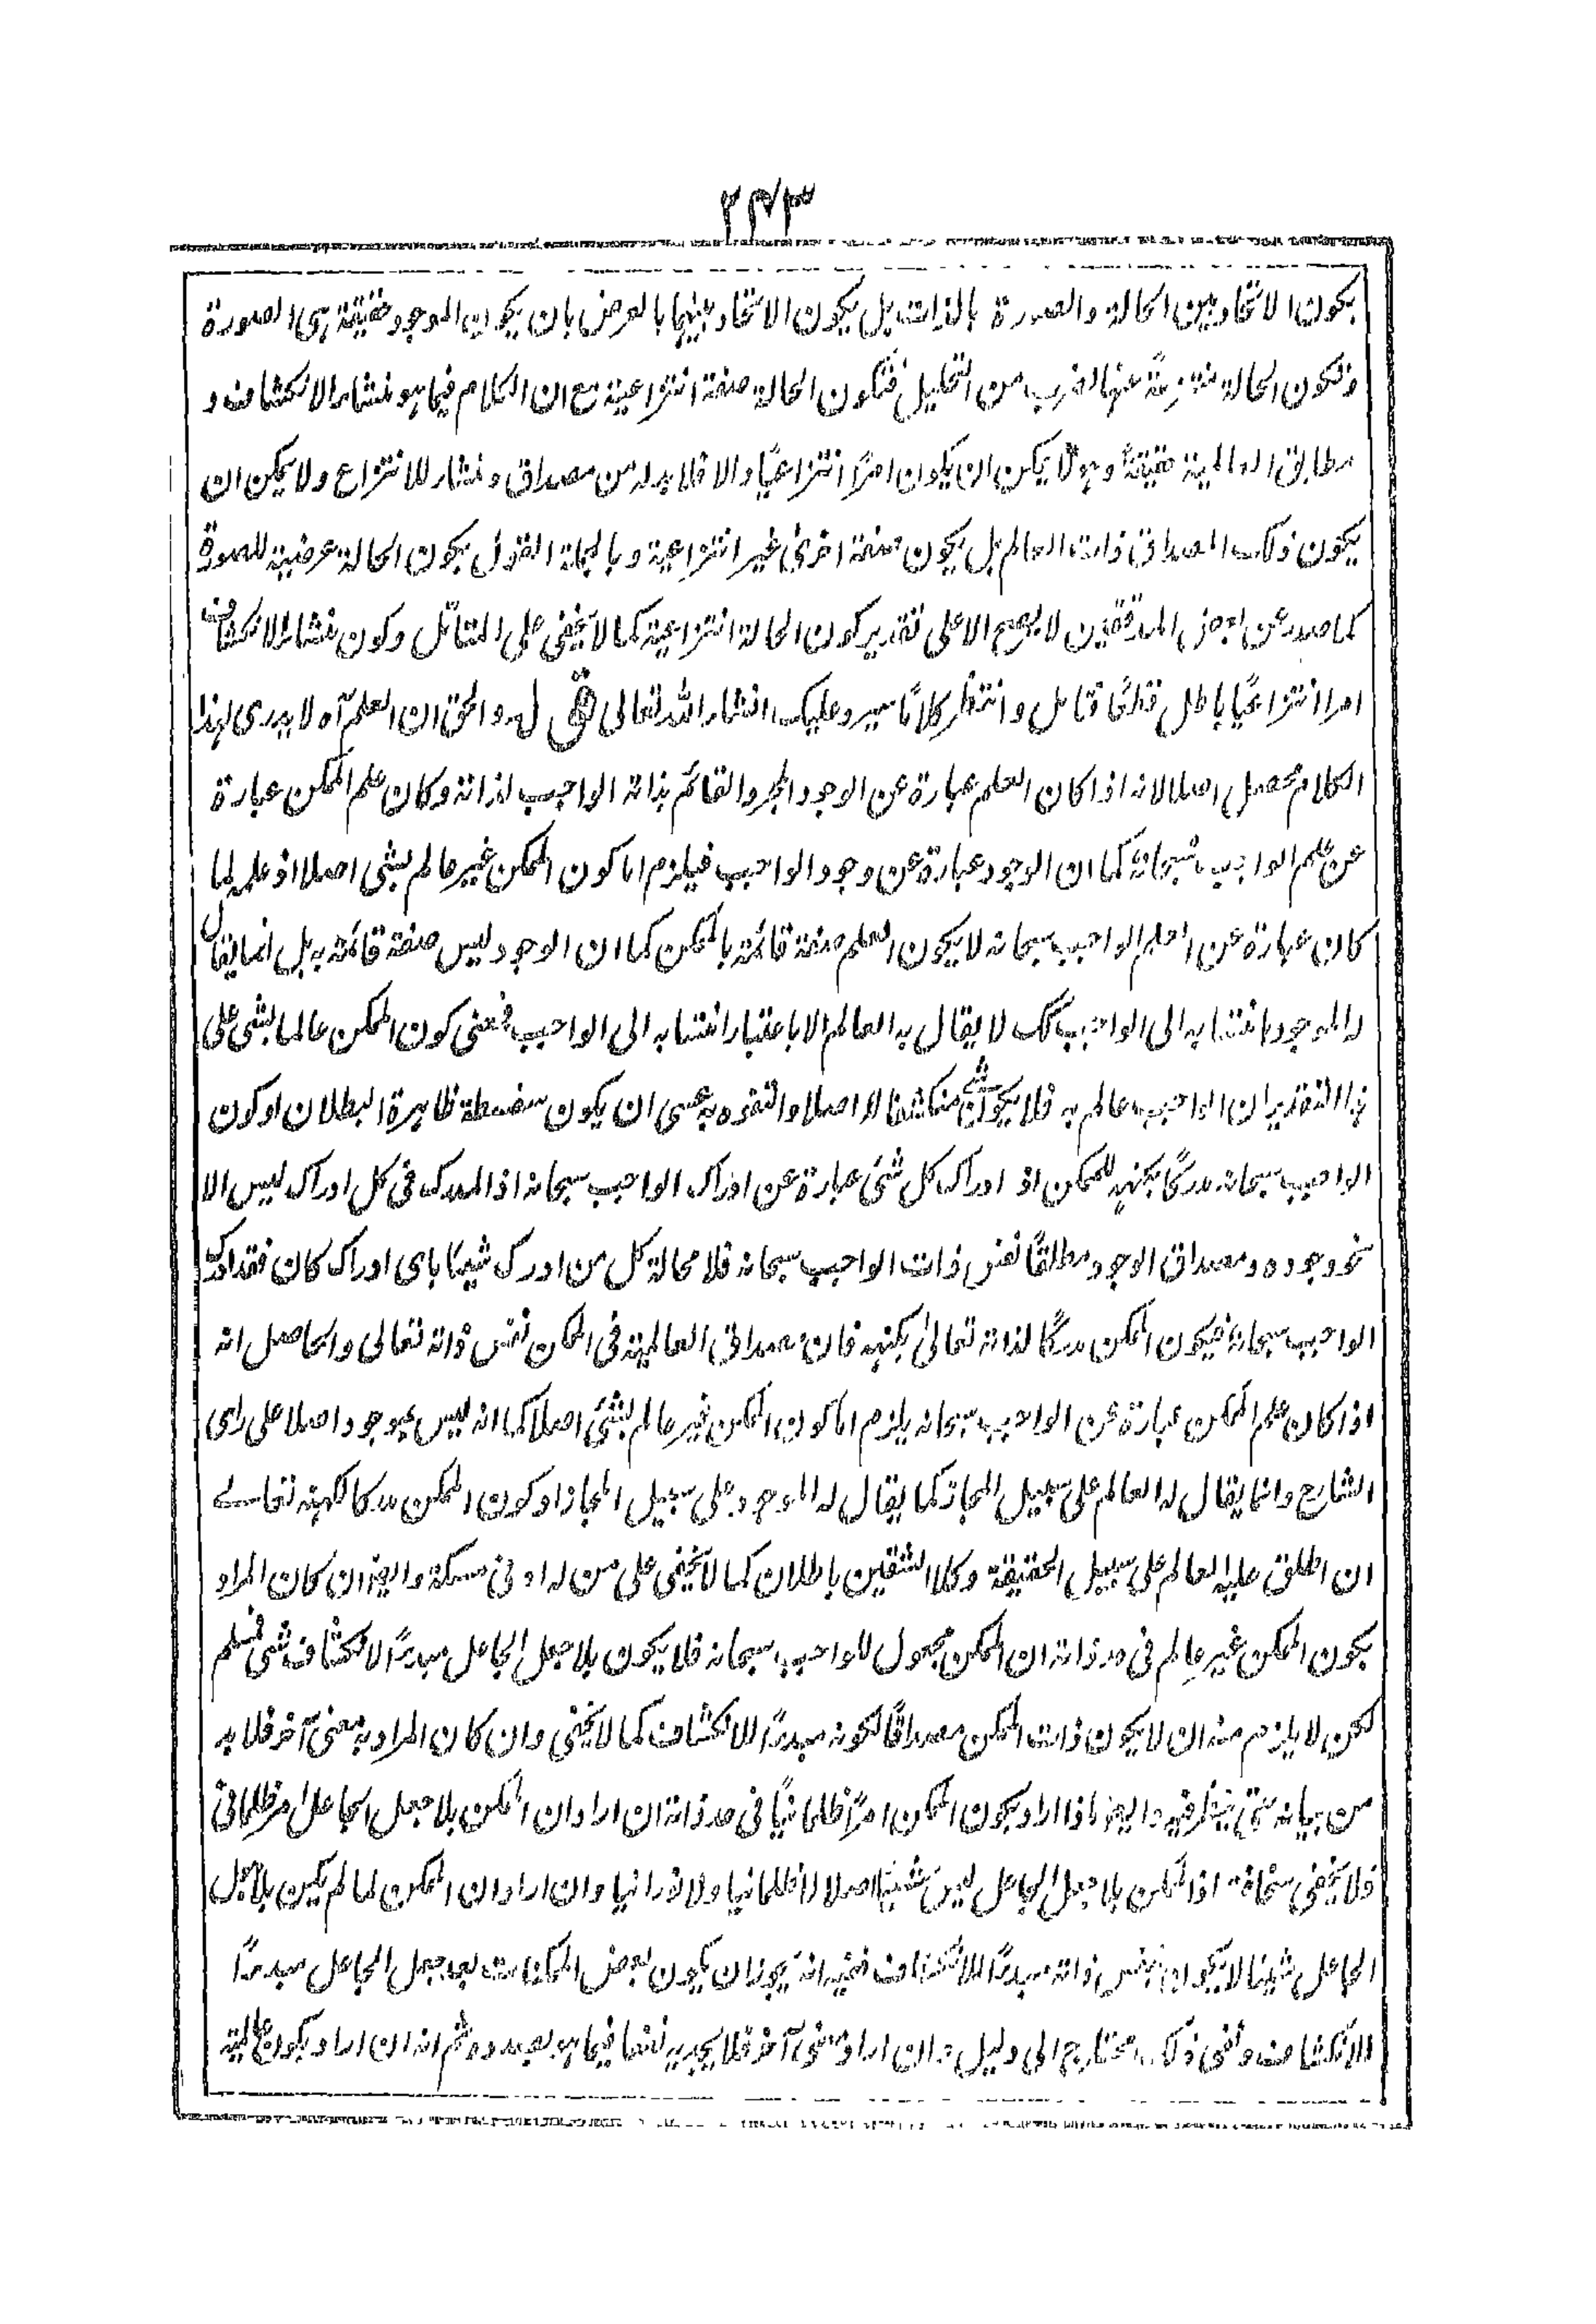 ٢٤٣
يكون الاتحاد بين الحالة والصورة بالذات بل يكون الاتحاد بينهما بالعرض بان يكون الموجود حقيقة هى الصورة
وتكون الحالة منتزعةً عنها لضرب من التحليل فتكون الحالة صفة انتزاعية مع ان الكلام فيما هو منشاء الانكشاف و
مطابق العالمية حقيقةً وهو لا يمكن ان يكون امرًا انتزاعيًا والا فلا بد له من مصداق ومنشاء للانتزاع ولا يمكن ان
يكون ذلك المصداق ذات العالم بل يكون صفة اخرىٰ غير انتزاعية وبالجملة القول بكون الحالة عرضية للصورة
كما صدر عن بعض المدققين لا يصح الا على تقدير كون الحالة انتزاعية كما لا يخفى على المتامل وكون منشاء الانكشاف
امرا انتزاعيًا باطل قطعًا فتامل وانتظر كلامًا سيرد عليك انشاء الله تعالى قوله والحق ان العلم آه لا يدرى لهذا
الكلام محصل اصلا لانه اذا كان العلم عبارة عن الوجود المجرد القائم بذاته الواجب لذاته وكان علم الممكن عبارة
عن علم الواجب سبحانه كما ان الوجود عبارة عن وجود الواجب فيلزم اما كون الممكن غير عالم بشئ اصلا اذ علمه لما
كان عبارة عن العلم الواجب سبحانه لا يكون العلم صفة قائمة بالممكن كما ان الوجود ليس صفة قائمة به بل انما يقال
له الموجود بانتسابه الى الواجب كك لا يقال به العالم الا باعتبار انتسابه الى الواجب فمعنى كون الممكن عالما بشئ على
هذا التقدير ان الواجب عالم به فلا يكون شئ منكشفا له اصلا والتفوه به عسى ان يكون سفسطة ظاهرة البطلان او كون
الواجب سبحانه مدركًا بكنهه للممكن اذ ادراك كل شئ عبارة عن ادراك الواجب سبحانه اذ المدرك فى كل ادراك ليس الا
نحو وجوده ومصداق الوجود مطلقًا نفس ذات الواجب سبحانه فلا محالة كل من ادرك شيئًا باى ادراك كان فقد ادرك
الواجب سبحانه فيكون الممكن مدركًا لذاته تعالىٰ بكنهه فان مصداق العالمية فى الممكن نفس ذاته تعالى والحاصل انه
اذا كان علم الممكن عبارة عن الواجب سبحانه يلزم اما كون الممكن غير عالم بشئ اصلا كما انه ليس بموجود اصلا على راى
الشارح وانما يقال له العالم على سبيل المجاز كما يقال له الموجود على سبيل المجاز او كون الممكن مدركا لكنهه تعالے
ان اطلق عليه العالم على سبيل الحقيقة وكلا الشقين باطلان كما لا يخفى على من له ادنى مسكة وايضا ان كان المراد
بكون الممكن غير عالم فى حد ذاته ان الممكن مجعول للواجب سبحانه فلا يكون بلا جعل الجاعل مبدءًا لانكشاف شئ فمسلم
لكن لا يلزم منه ان لا يكون ذات الممكن مصداقًا لكونه مبدءًا للانكشاف كما لا يخفى وان كان المراد به معنى آخر فلا بد
من بيانه حتى ينظر فيه وايضا ماذا اراد بكون الممكن امرًا ظلمانيًا فى حد ذاته ان اراد ان الممكن بلا جعل الجاعل امر ظلمانى
فلا يخفى سخافته اذ الممكن بلا جعل الجاعل ليس شيئًا اصلا لا ظلمانيا ولا نورانيا وان اراد ان الممكن لما لم يكن بلا جعل
الجاعل شيئا لا يكون بنفس ذاته مبدءًا للانكشاف ففيه انه يجوز ان يكون بعض الممكنات بعد جعل الجاعل مبدءًا
للانكشاف ونفى ذلك محتاج الى دليل وان اراد معنى آخر فلا يجديه نفعا فيما هو بصدده ثم انه ان اراد بكون عالمية